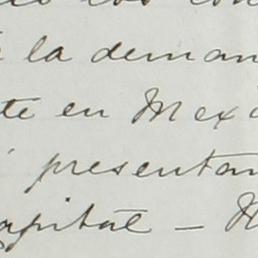 la deman
te en Mex
presentan
apital —